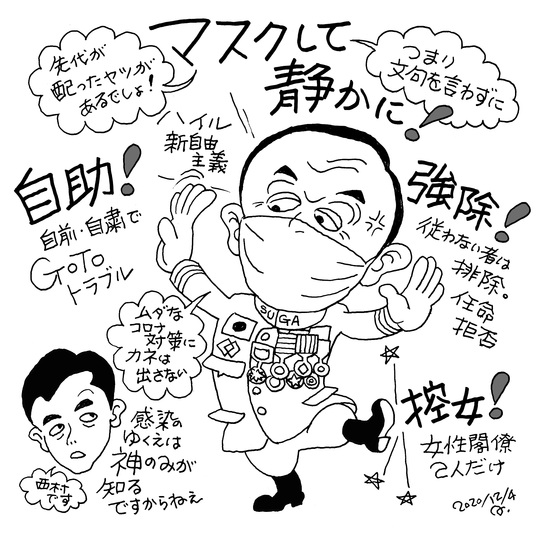 マスクして
静かに!
先代が
配ったヤツが
あるでしょ!
つまり
文句を言わずに
ハイル
新自由
主義
自助!
自前・自粛で
GoTo
トラブル
強除!
従わない者は
排除。
任命
拒否
SUGA
ムダな
コロナ
対策に
カネは
出さない
控女!
女性閣僚
2人だけ
感染の
ゆくえは
神のみが
知る
ですからねぇ
西村
です
2020/12/4